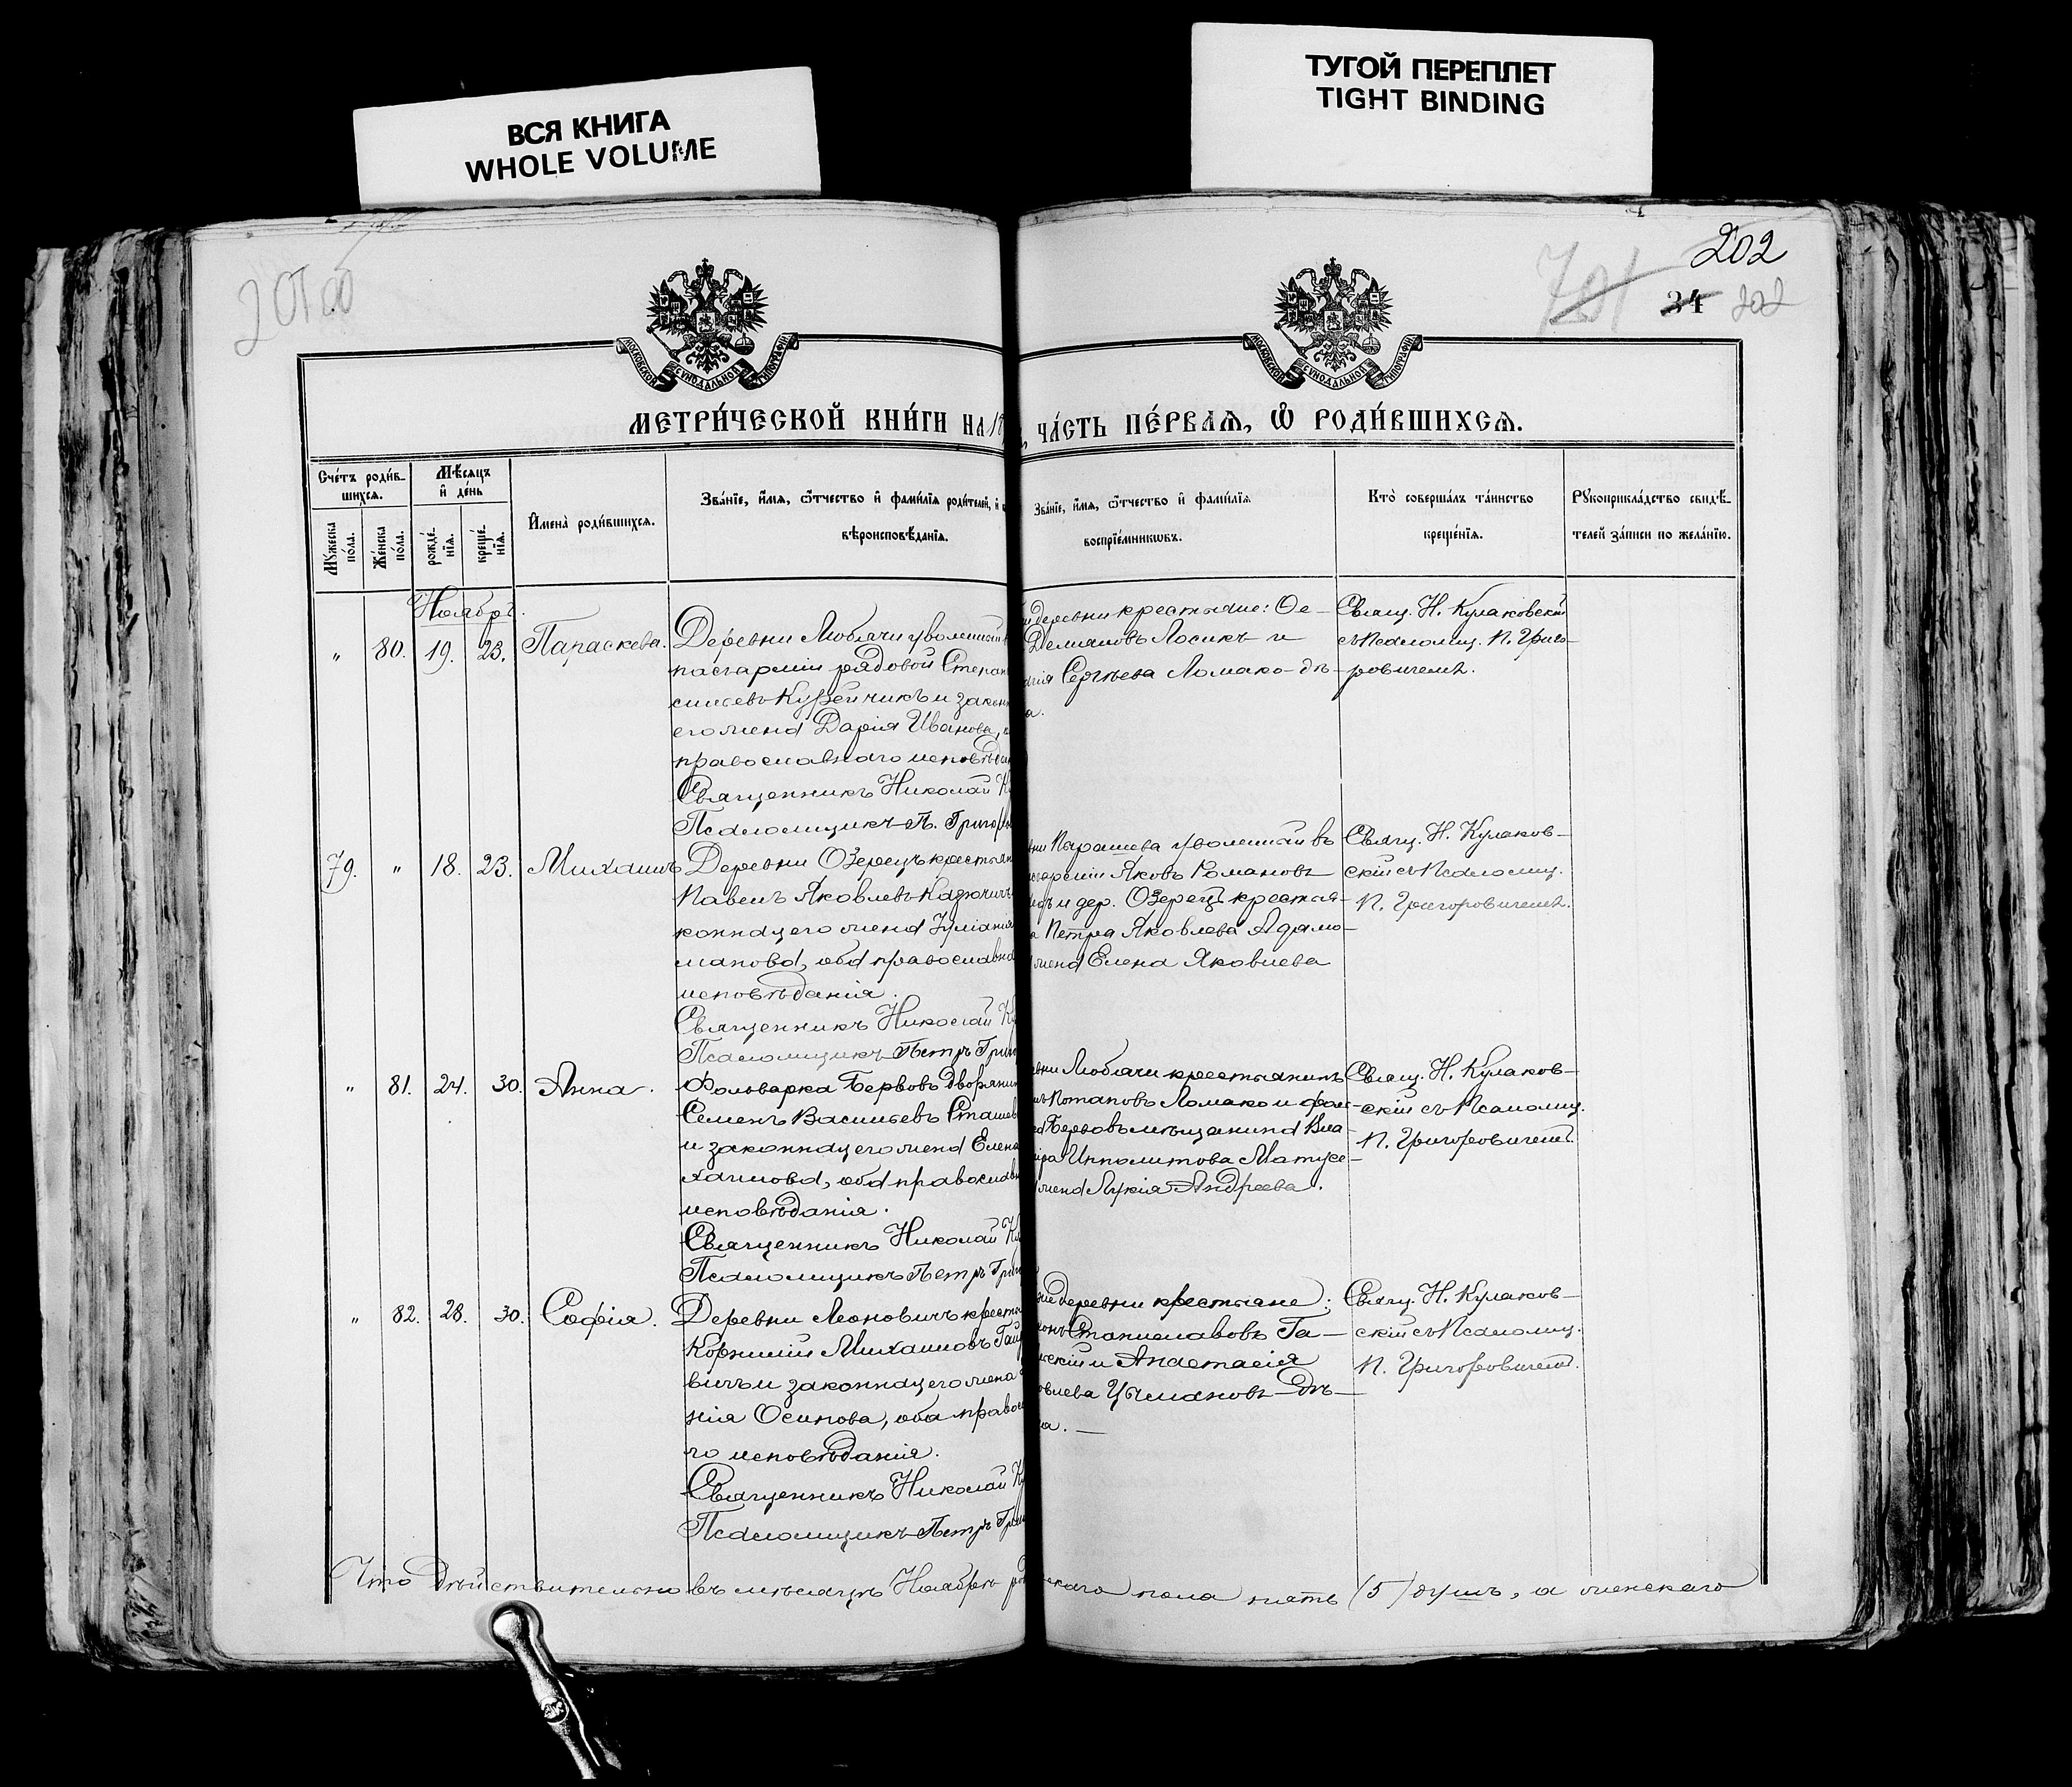 ВСЯ КНИГА
WHOLE VOLUME
ТУГОЙ ПЕРЕПЛЕТ
TIGHT BINDING
201об
202
34 202
МОСКОВСКОЙ СѴНОДАЛЬНОЙ ТИПОГРАФІИ
МОСКОВСКОЙ СѴНОДАЛЬНОЙ ТИПОГРАФІИ
МЕТРИ́ЧЕСКОЙ КНИ́ГИ НА 18
, ЧА́СТЬ ПЕ́РВАѦ, Ѽ РОДИ́ВШИХСѦ.
Сче́тъ роди́в-
шихсѧ.
Мꙋ́жеска по́ла.
Же́нска по́ла.
Мѣ́сѧцъ
и҆ де́нь
рожде́-
нїѧ.
креще́-
нїѧ.
И҆мена̀ роди́вшихсѧ.
Зва́нїе, и҆́мѧ, ѻ҆́тчество и҆ фами́лїѧ роди́телей, и҆
вѣроисповѣ́данїѧ.
Зва́нїе, и҆́мѧ, ѻ҆́тчество и҆ фами́лїѧ
воспрїе́мникѡвъ.
Кто̀ соверша́лъ та́инство
креще́нїѧ.
Рꙋкоприкла́дство свидѣ́-
телей за́писи по жела́нїю.
Ноябрь.
" 80. 19. 23. Параскева.
Деревни Люблачи уволенный
Степан
Курейчикъ и закон
его жена Дарія Иванова,
православнаго исповѣдан
Священникъ Николай К
Псаломщикъ П. Григоров
деревни крестьяне: Ое-
Демановъ Лосикъ и
Сергѣева Ломако-дѣ-
а.
Свящ. Н. Кулаковскій
съ Псаломщ. П. Григо-
ровичемъ.
79. " 18. 23. Михаилъ
Деревни Озерецъ крестьян
Павелъ Яковлевъ
конная его жена Іуліанія
манова, оба православна
исповѣданія.
Священникъ Николай Ку
Псаломщикъ Петръ Григ
уволенный въ
арміи Яковъ Романовъ
и дер. Озерецъ крестья-
Петра Яковлева Адамо-
жена Елена Яковлева
Свящ. Н. Кулаков-
скій съ Псаломщ.
П. Григоровичемъ.
" 81. 24. 30. Анна.
Фольварка Бервовъ дворянин
Семенъ Васильевъ Сташев
и законная его жена Елена
хаилова, оба православн
исповѣданія.
Священникъ Николай Ку
Псаломщикъ Петръ Григ
вни Люблачи крестьянинъ
Потаповъ Ломако и фол-
Бервовъ мѣщанина Вла-
Ипполитова Матусе-
жена Лукія Андреева.
Свящ. Н. Кулаков-
скій съ Псаломщ.
П. Григоровичемъ.
" 82. 28. 30. Софія.
Деревни Леоновичъ кресть
Корнилій Михаиловъ Гай
вичъ и законная его жена
нія Осипова, оба правосл
го исповѣданія.
Священникъ Николай Ку
Псаломщикъ Петръ Григ
деревни крестьяне:
Станиславовъ Га-
скій и Анастасія
овлева Цымановъ-дѣ-
ка.
Свящ. Н. Кулаков-
скій съ Псаломщ.
П. Григоровичемъ.
Что дѣйствительно въ мѣсяцѣ Ноябрѣ
скаго пола пять (5) душъ, а женскаго